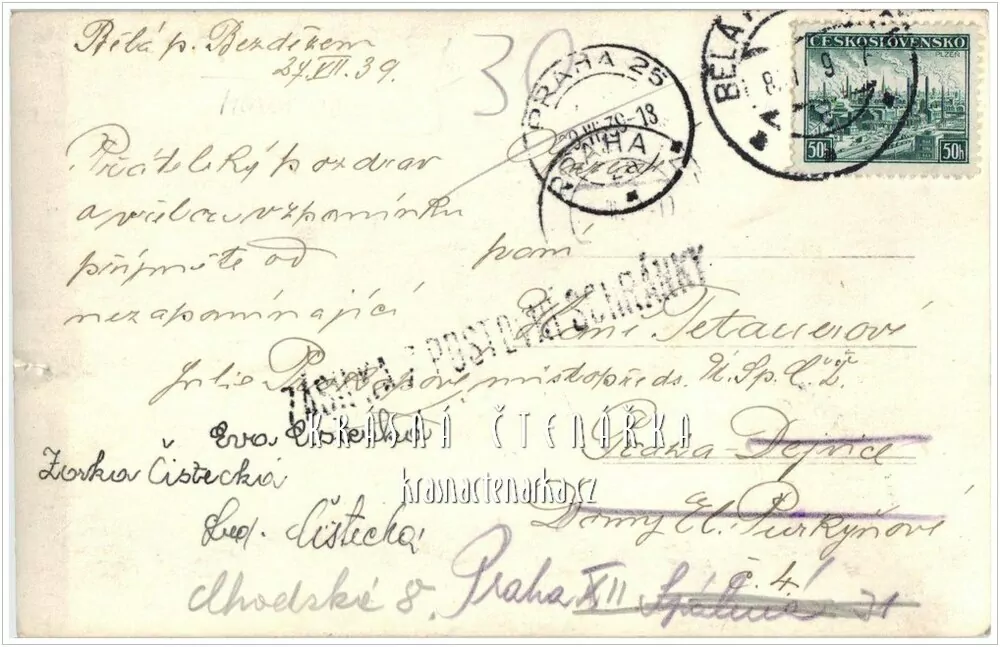 Bělá p. Bezdězem
27 VII. 39.
30
PRAHA 25
PRAHA
BĚLÁ
ČESKOSLOVENSKO
PLZEŇ
50h 50h
Přátelský pozdrav
a vřelou vzpomínku
přijměte od
nezapomínající
paní
Haně Tetauerové
Julie
místopředs. Ú. Sp. C. Ž.
ZÁSILKA Z POŠTOVNÍ SCHRÁNKY
Eva
KRÁSNÁ ČTENÁŘKA
krasnactenarka.cz
Zorka Čistecká
Lud. Čistecká
Praha-Dejvice
Domy El. Purkyňové
č. 4
Chodská 8. Praha XII
Spálená 31